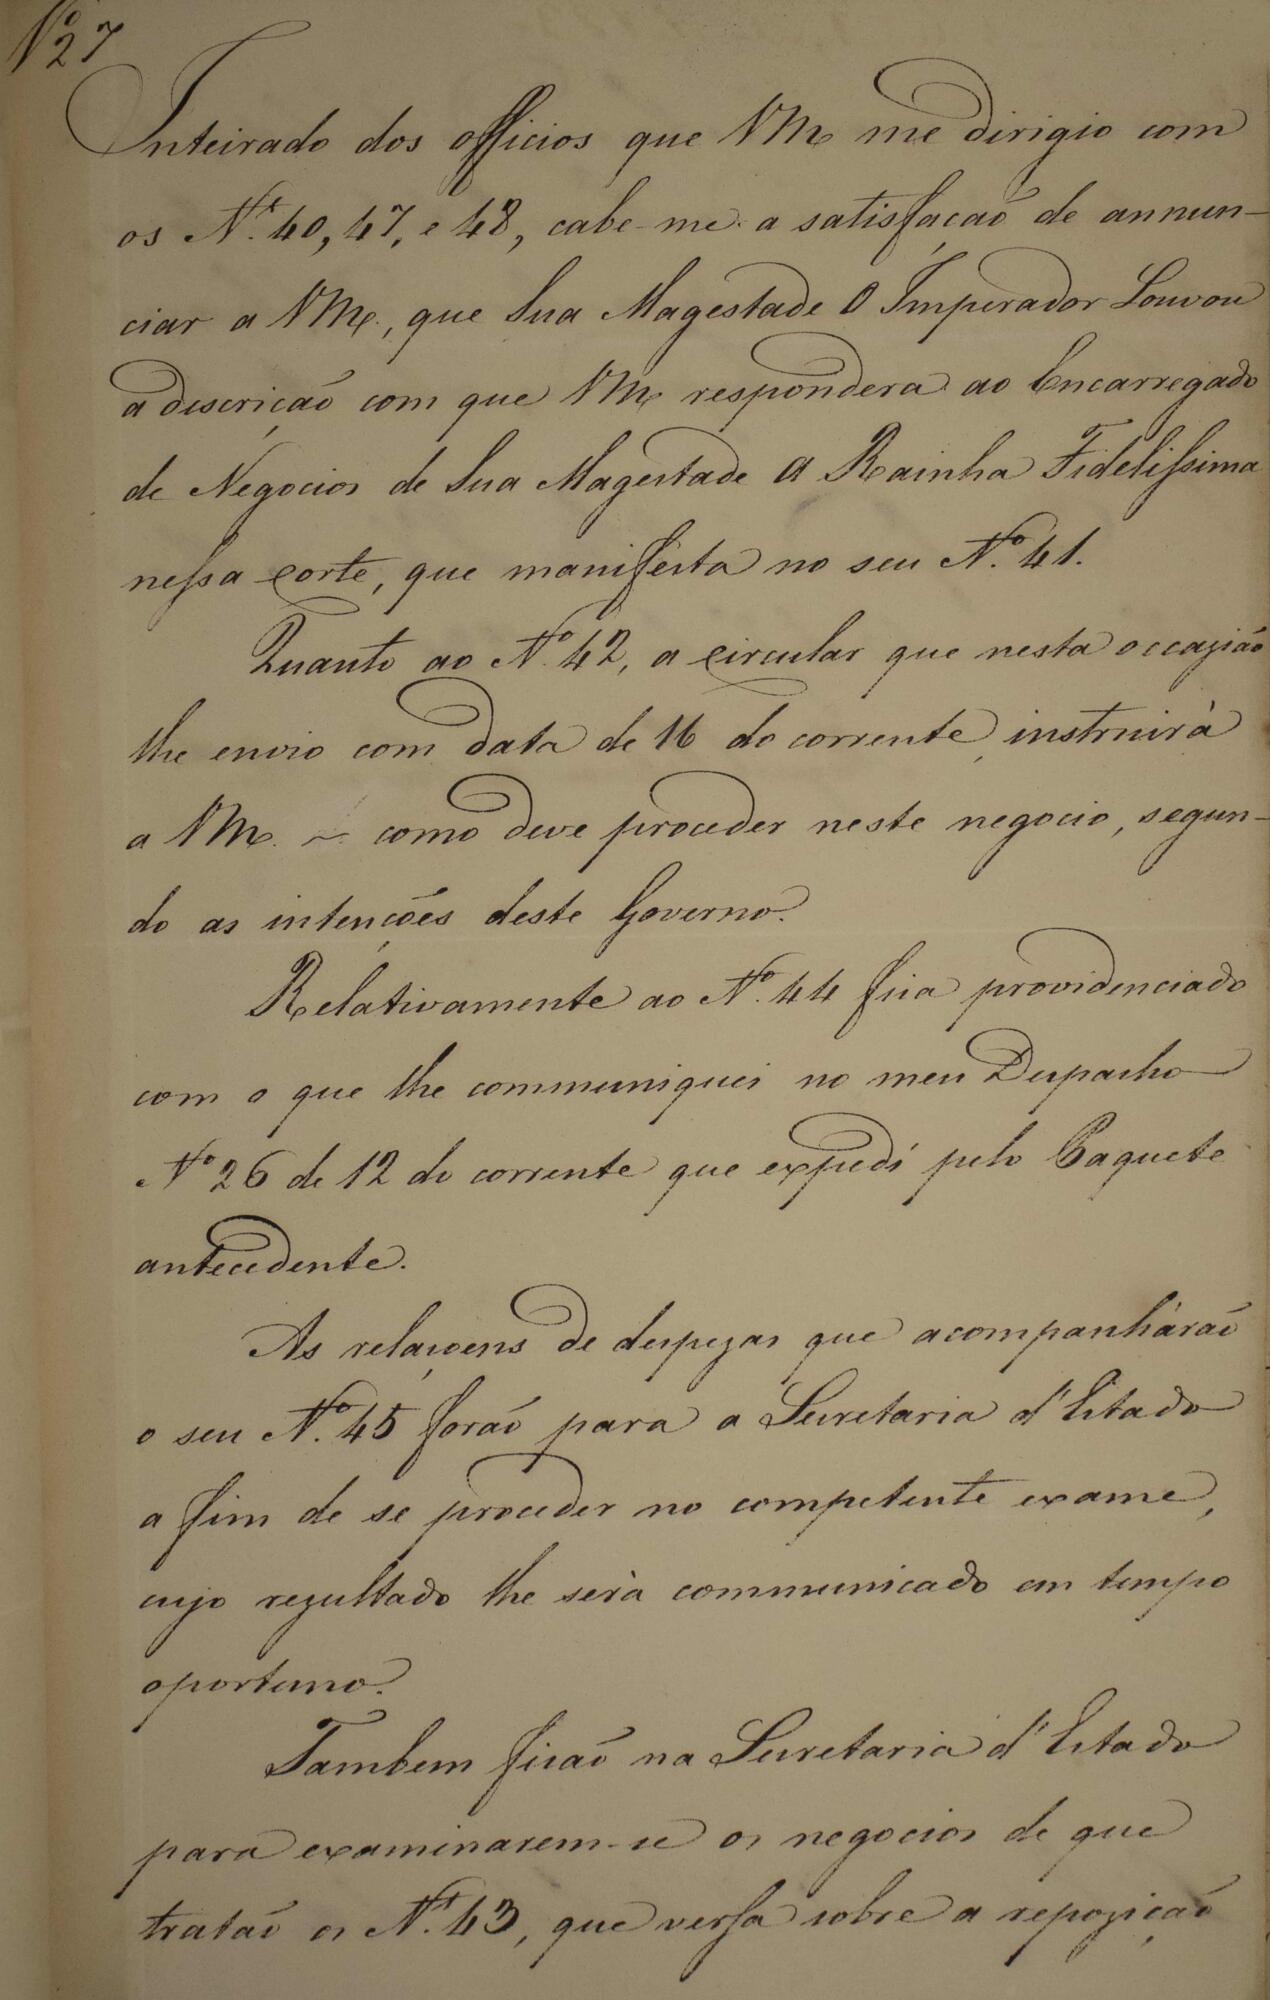 Nº 27
Inteirado dos officios que VM.ce me dirigio com
os N.os 40, 47, e 48, cabe-me a satisfação de annun-
ciar a VM.ce, que Sua Magestade O Imperador Louvou
a discrição com que VM.ce respondera ao Encarregado
de Negocios de Sua Magestade A Rainha Fidelissima
nessa Corte, que manifesta no seu Nº 41.
Quanto ao Nº 42, a circular que nesta occazião
lhe envio com data de 16 do corrente, instruirà
a VM.ce ~ como deve proceder neste negocio, segun-
do as intenções deste Governo.
Relativamente ao Nº 44 fica providenciado
com o que lhe communiquei no meu Despacho
Nº 26 de 12 do corrente que expedi pelo Paquete
antecedente.
As relaçoens de despezas que acompanhárão
o seu Nº 45 forão para a Secretaria d'Estado
a fim de se proceder no competente exame,
cujo rezultado lhe serà communicado em tempo
oportuno.
Tambem ficão na Secretaria d'Estado
para examinarem-se os negocios de que
tratão os N.os 43, que versa sobre a repozição